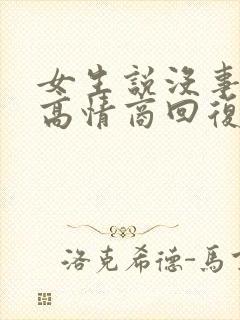 女生說沒事
高情商回復
洛克希德-馬